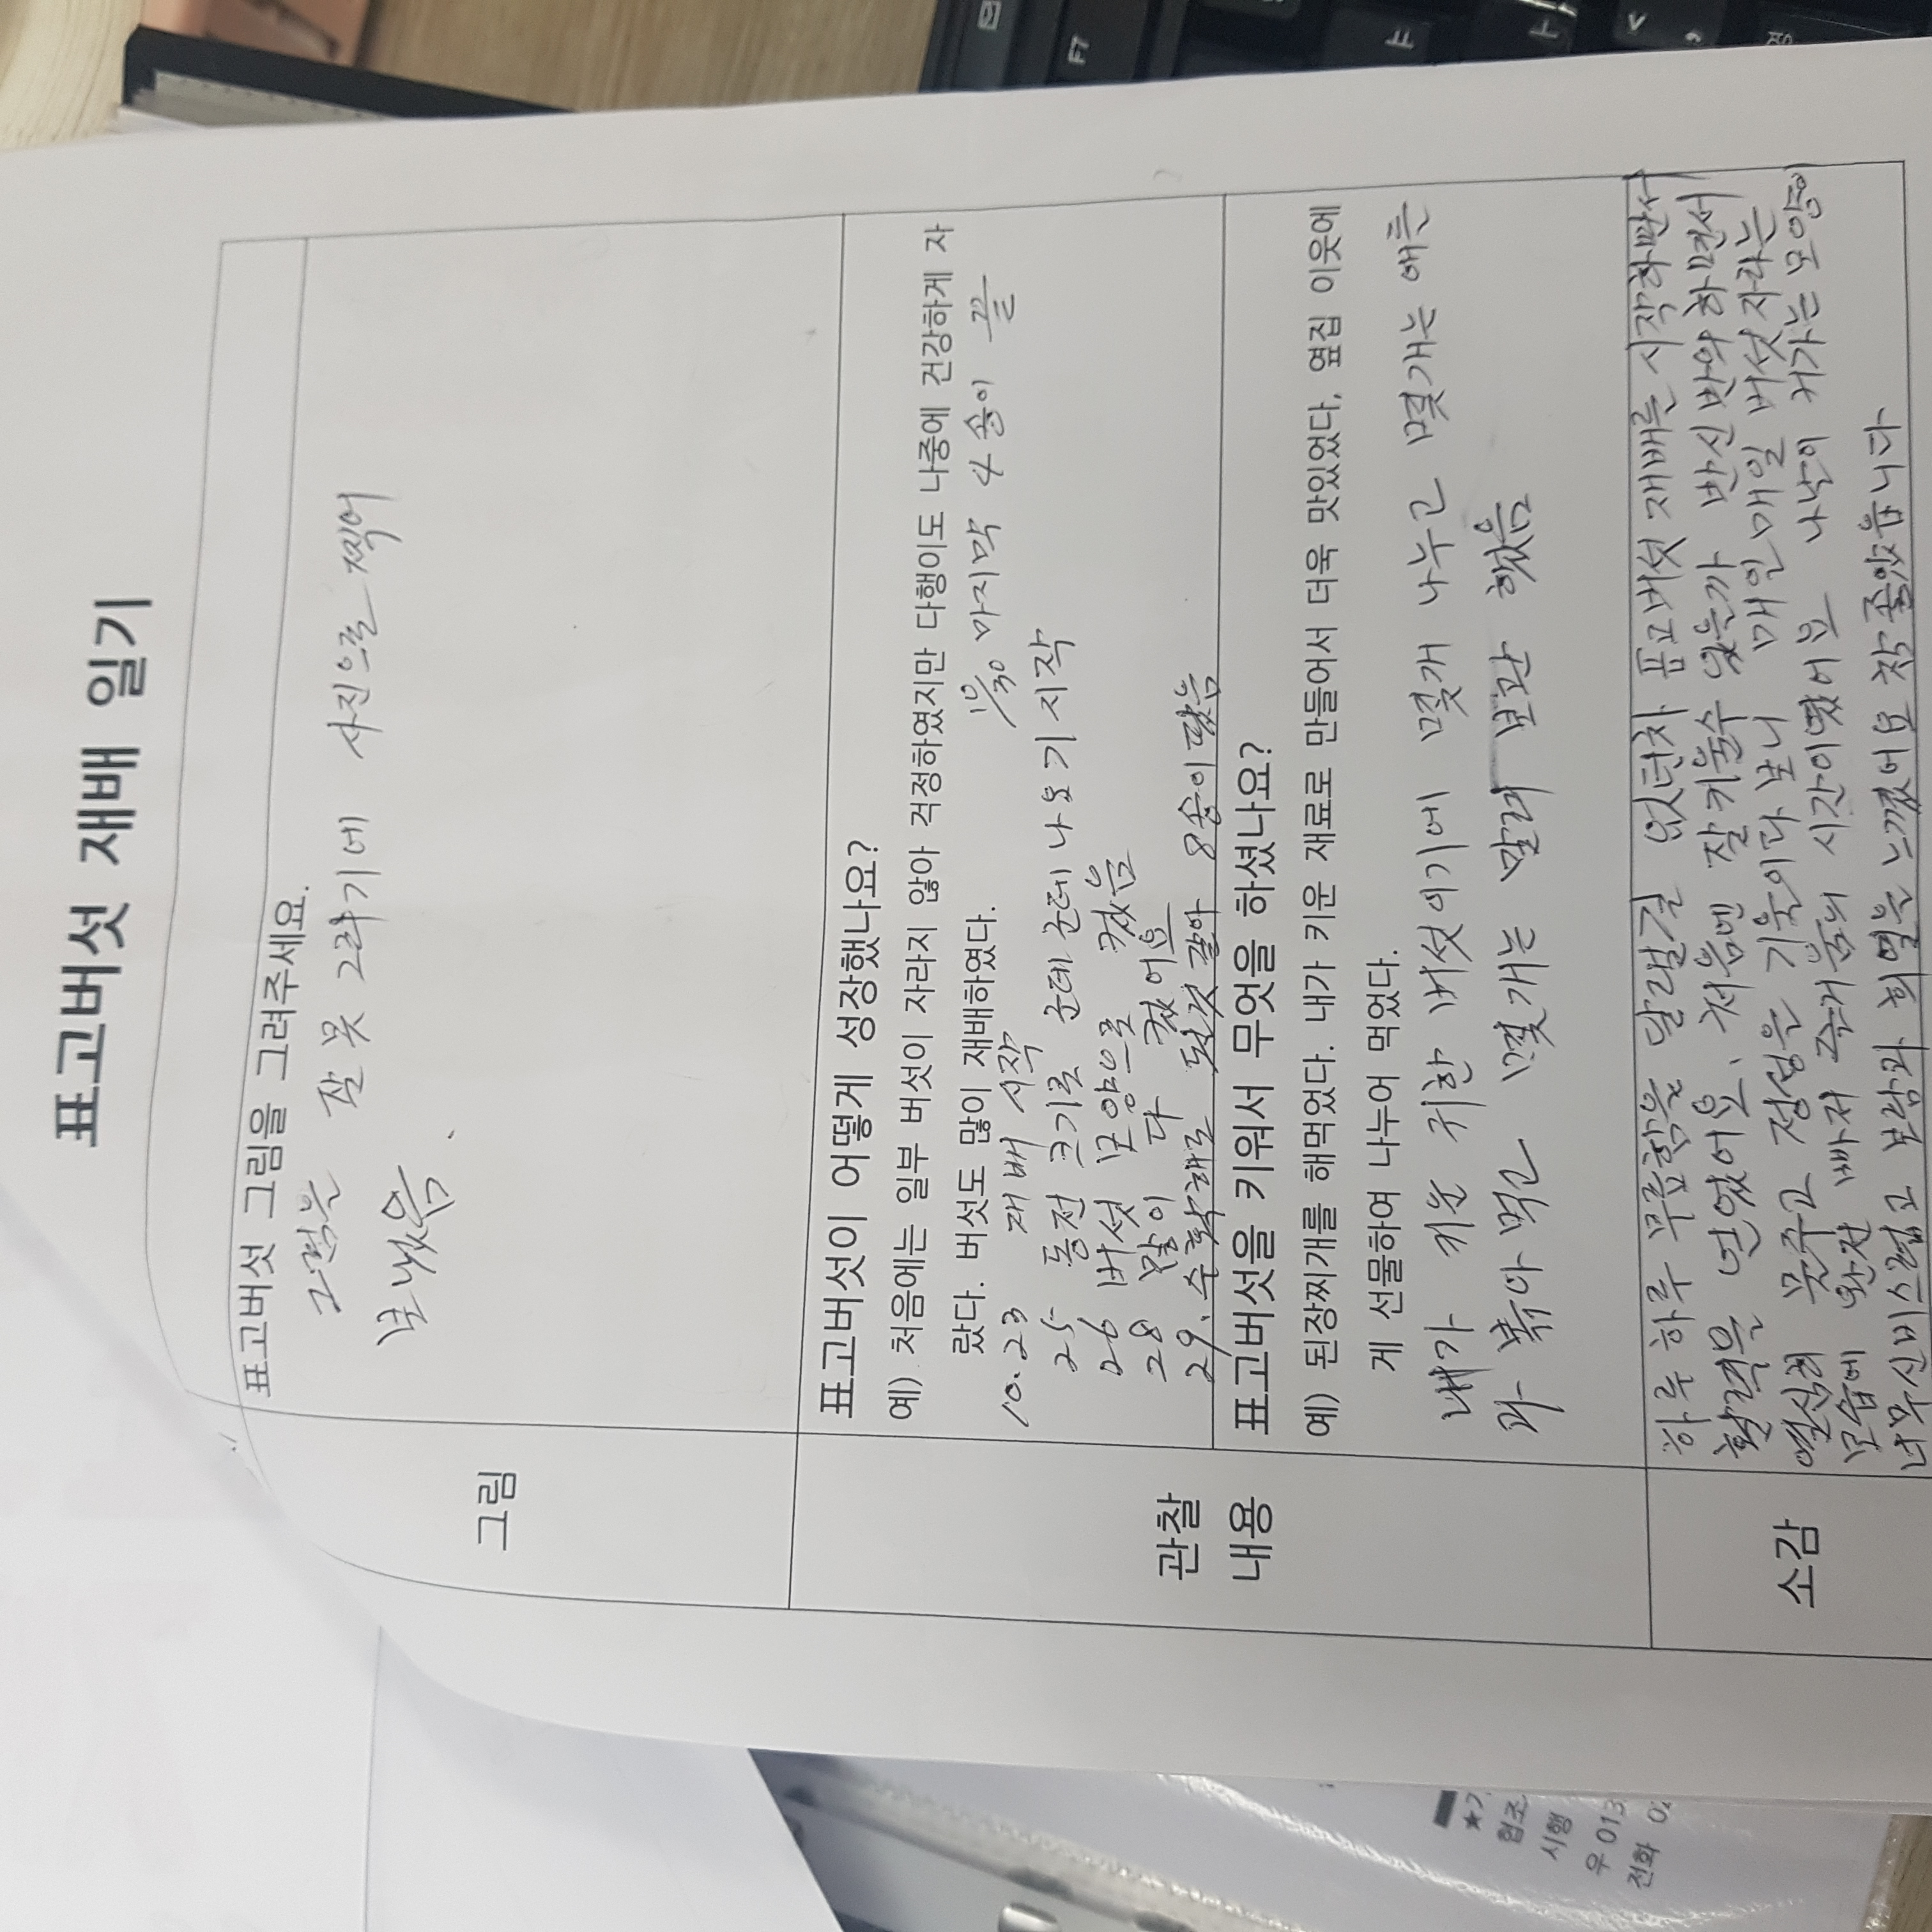 표고버섯 재배 일기
그림
표고버섯 그림을 그려주세요.
그림은 잘 못 그리기에 사진으로 찍어
보냈음.
관찰
내용
표고버섯이 어떻게 성장했나요?
예) 처음에는 일부 버섯이 자라지 않아 걱정하였지만 다행이도 나중에 건강하게 자
랐다. 버섯도 많이 재배하였다.
10/30 마지막 4송이 끝
10.23 재배 시작
25 동전 크기로 군데군데 나오기 시작
26 버섯 모양으로 컸음
28 많이 다 컸어요
29. 수확해도 된것 같아 8송이 땄음
표고버섯을 키워서 무엇을 하셨나요?
예) 된장찌개를 해먹었다. 내가 키운 재료로 만들어서 더욱 맛있었다. 옆집 이웃에
게 선물하여 나누어 먹었다.
내가 키운 귀한 버섯이기에 몇개 나누고 몇개는
볶아 먹고 몇개는 말려 보관 했음
소감
하루 하루 무료함을 달랠길 없던차 표고버섯 재배를 시작하면서
활력을 얻었어요. 처음엔 잘 키울수 있을까 반신반의 하면서
열심히 물주고 정성을 기울이다 보니 매일매일 버섯 자라는
모습에 완전 빠져 즐거움의 시간이였어요 나날이 커가는 모양이
너무 신비스럽고 보람과 희열을 느꼈어요 참 좋았읍니다
협조
시행
우 013
전화 02
F7